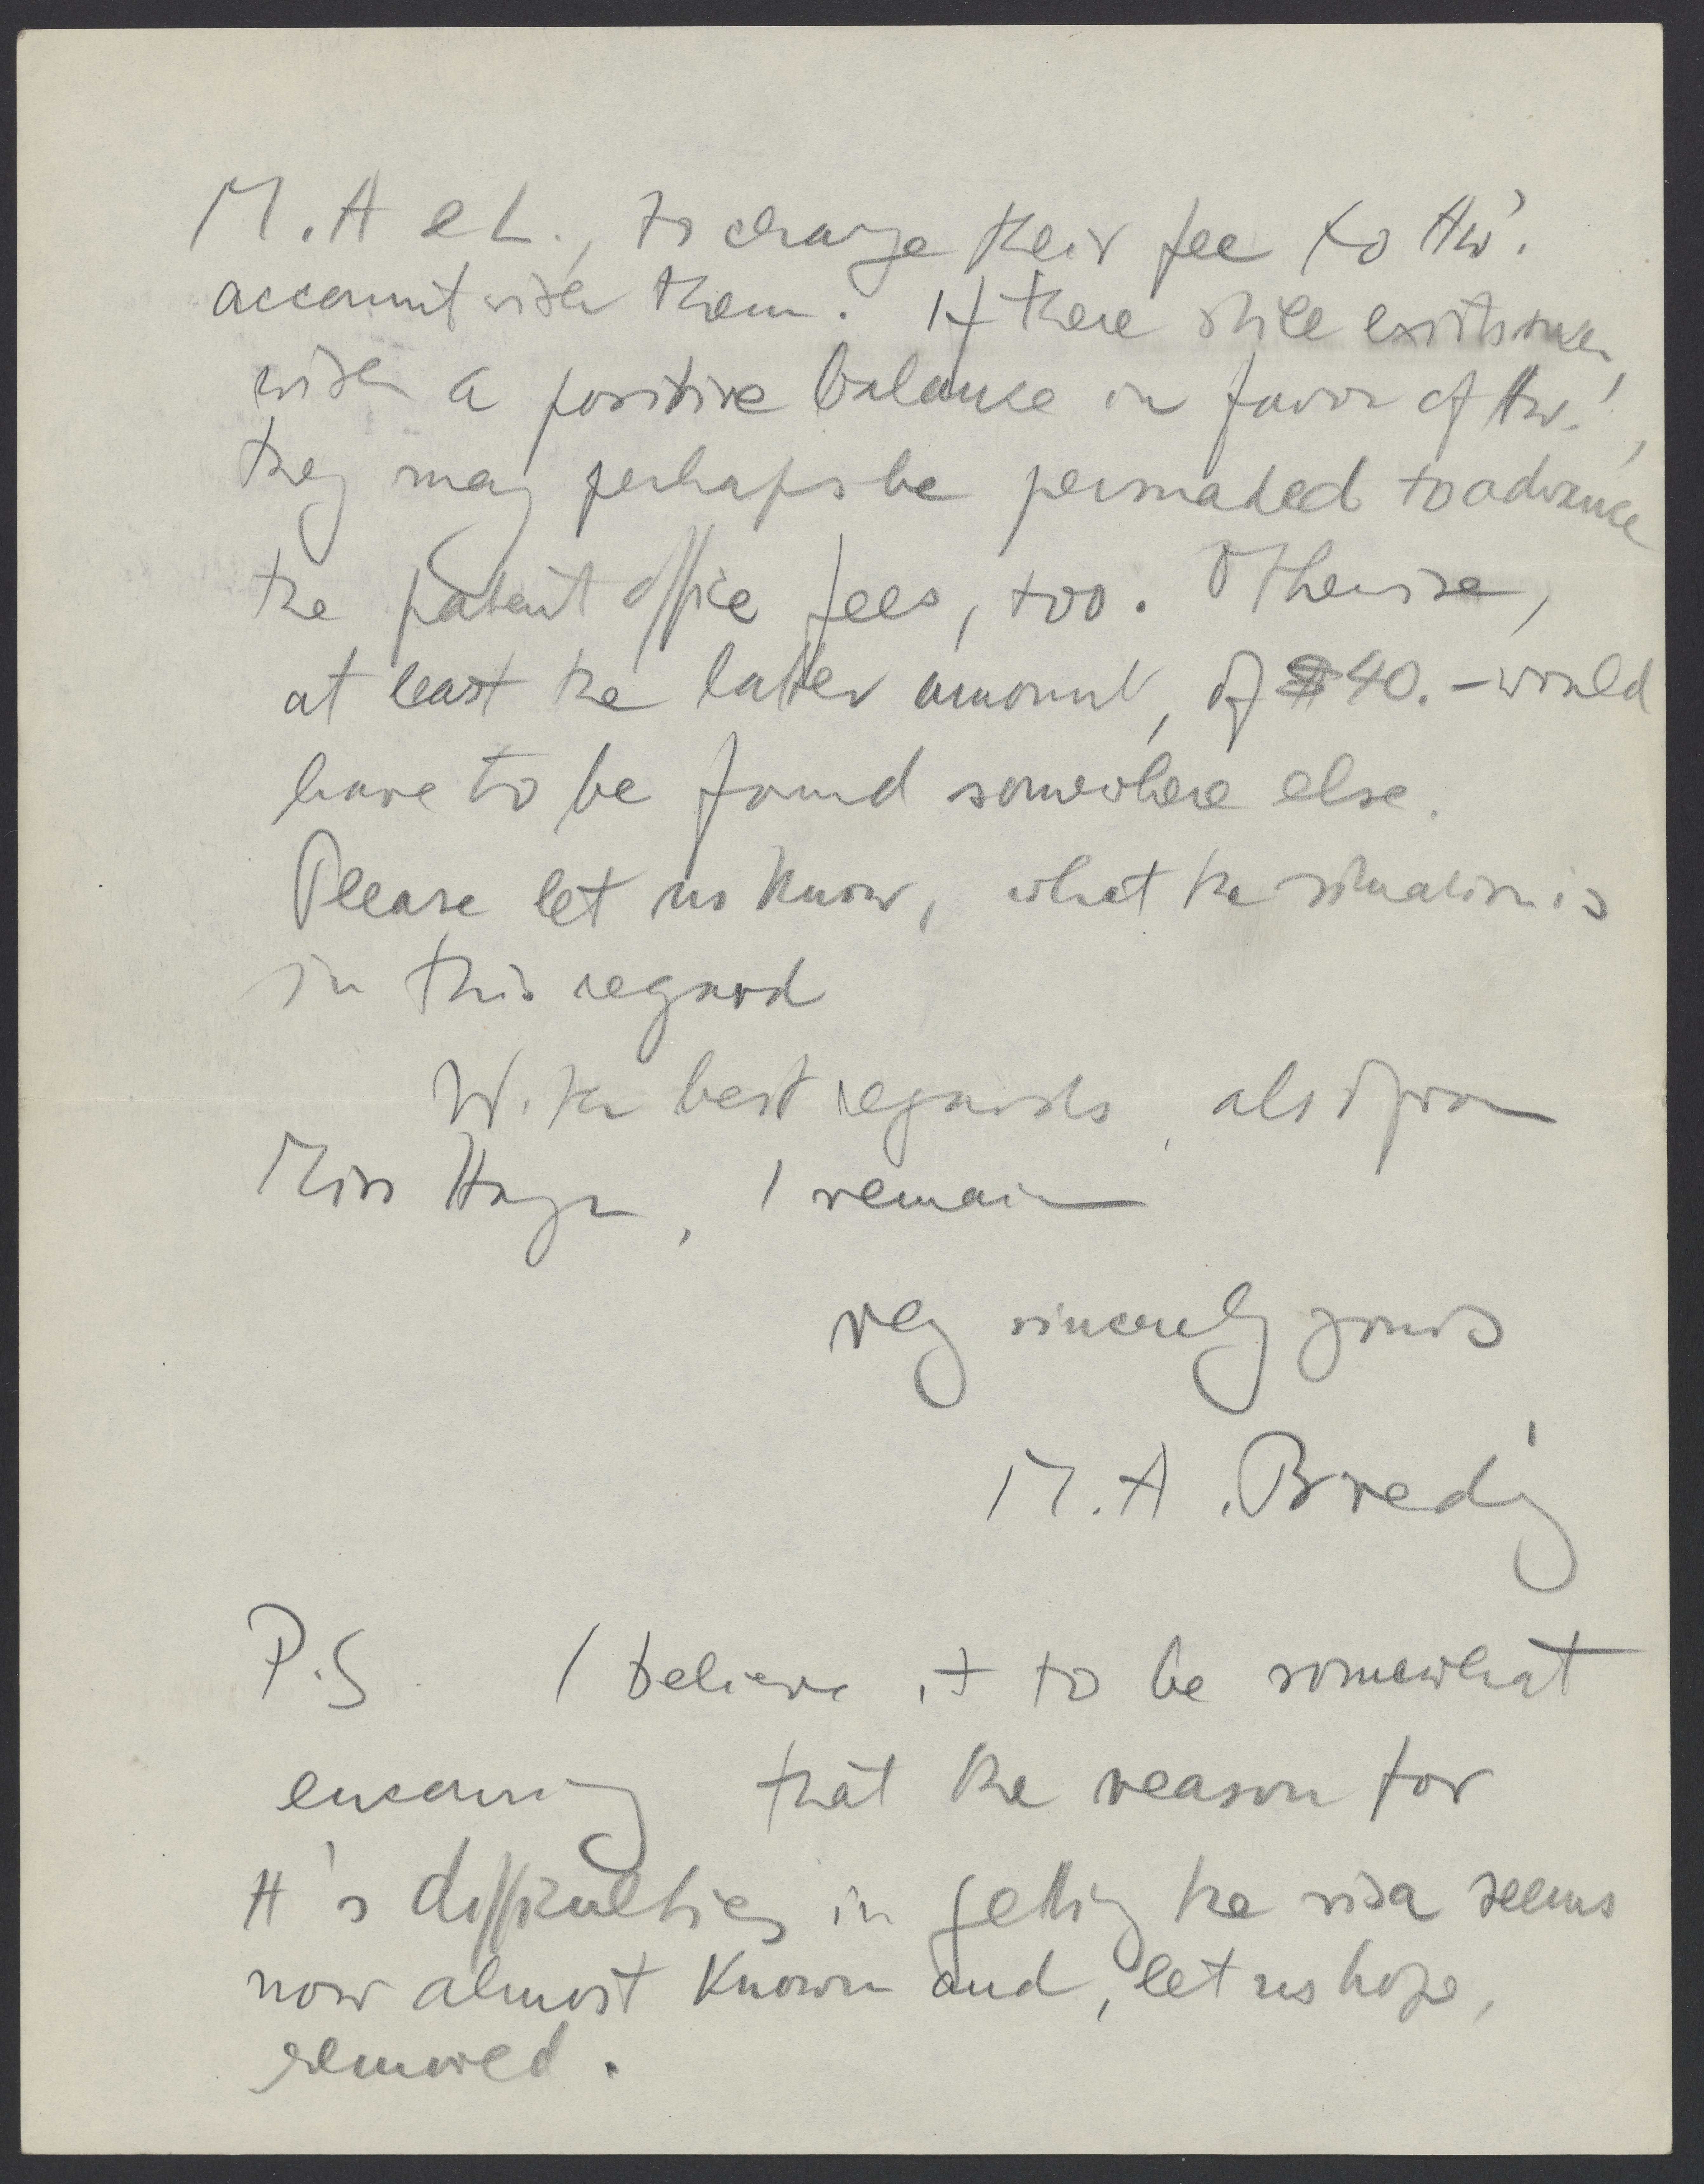 M.A & L., to charge their fee to Hw'.
account with them. If there still exists such,
with a positive balance in favor of Hw.',
they may perhaps be persuaded to advance
the patent office fees, too. Otherwise,
at least the latter amount, of $40.- would
have to be found somewhere else.
Please let us know, what the situation is
in this regard
With best regards, also from
Miss , I remain
very sincerely yours
M.A. Bredig
P.S I believe it to be somewhat
 that the reason for
H's difficulties in getting the visa seems
now almost known and, let us hope,
removed.